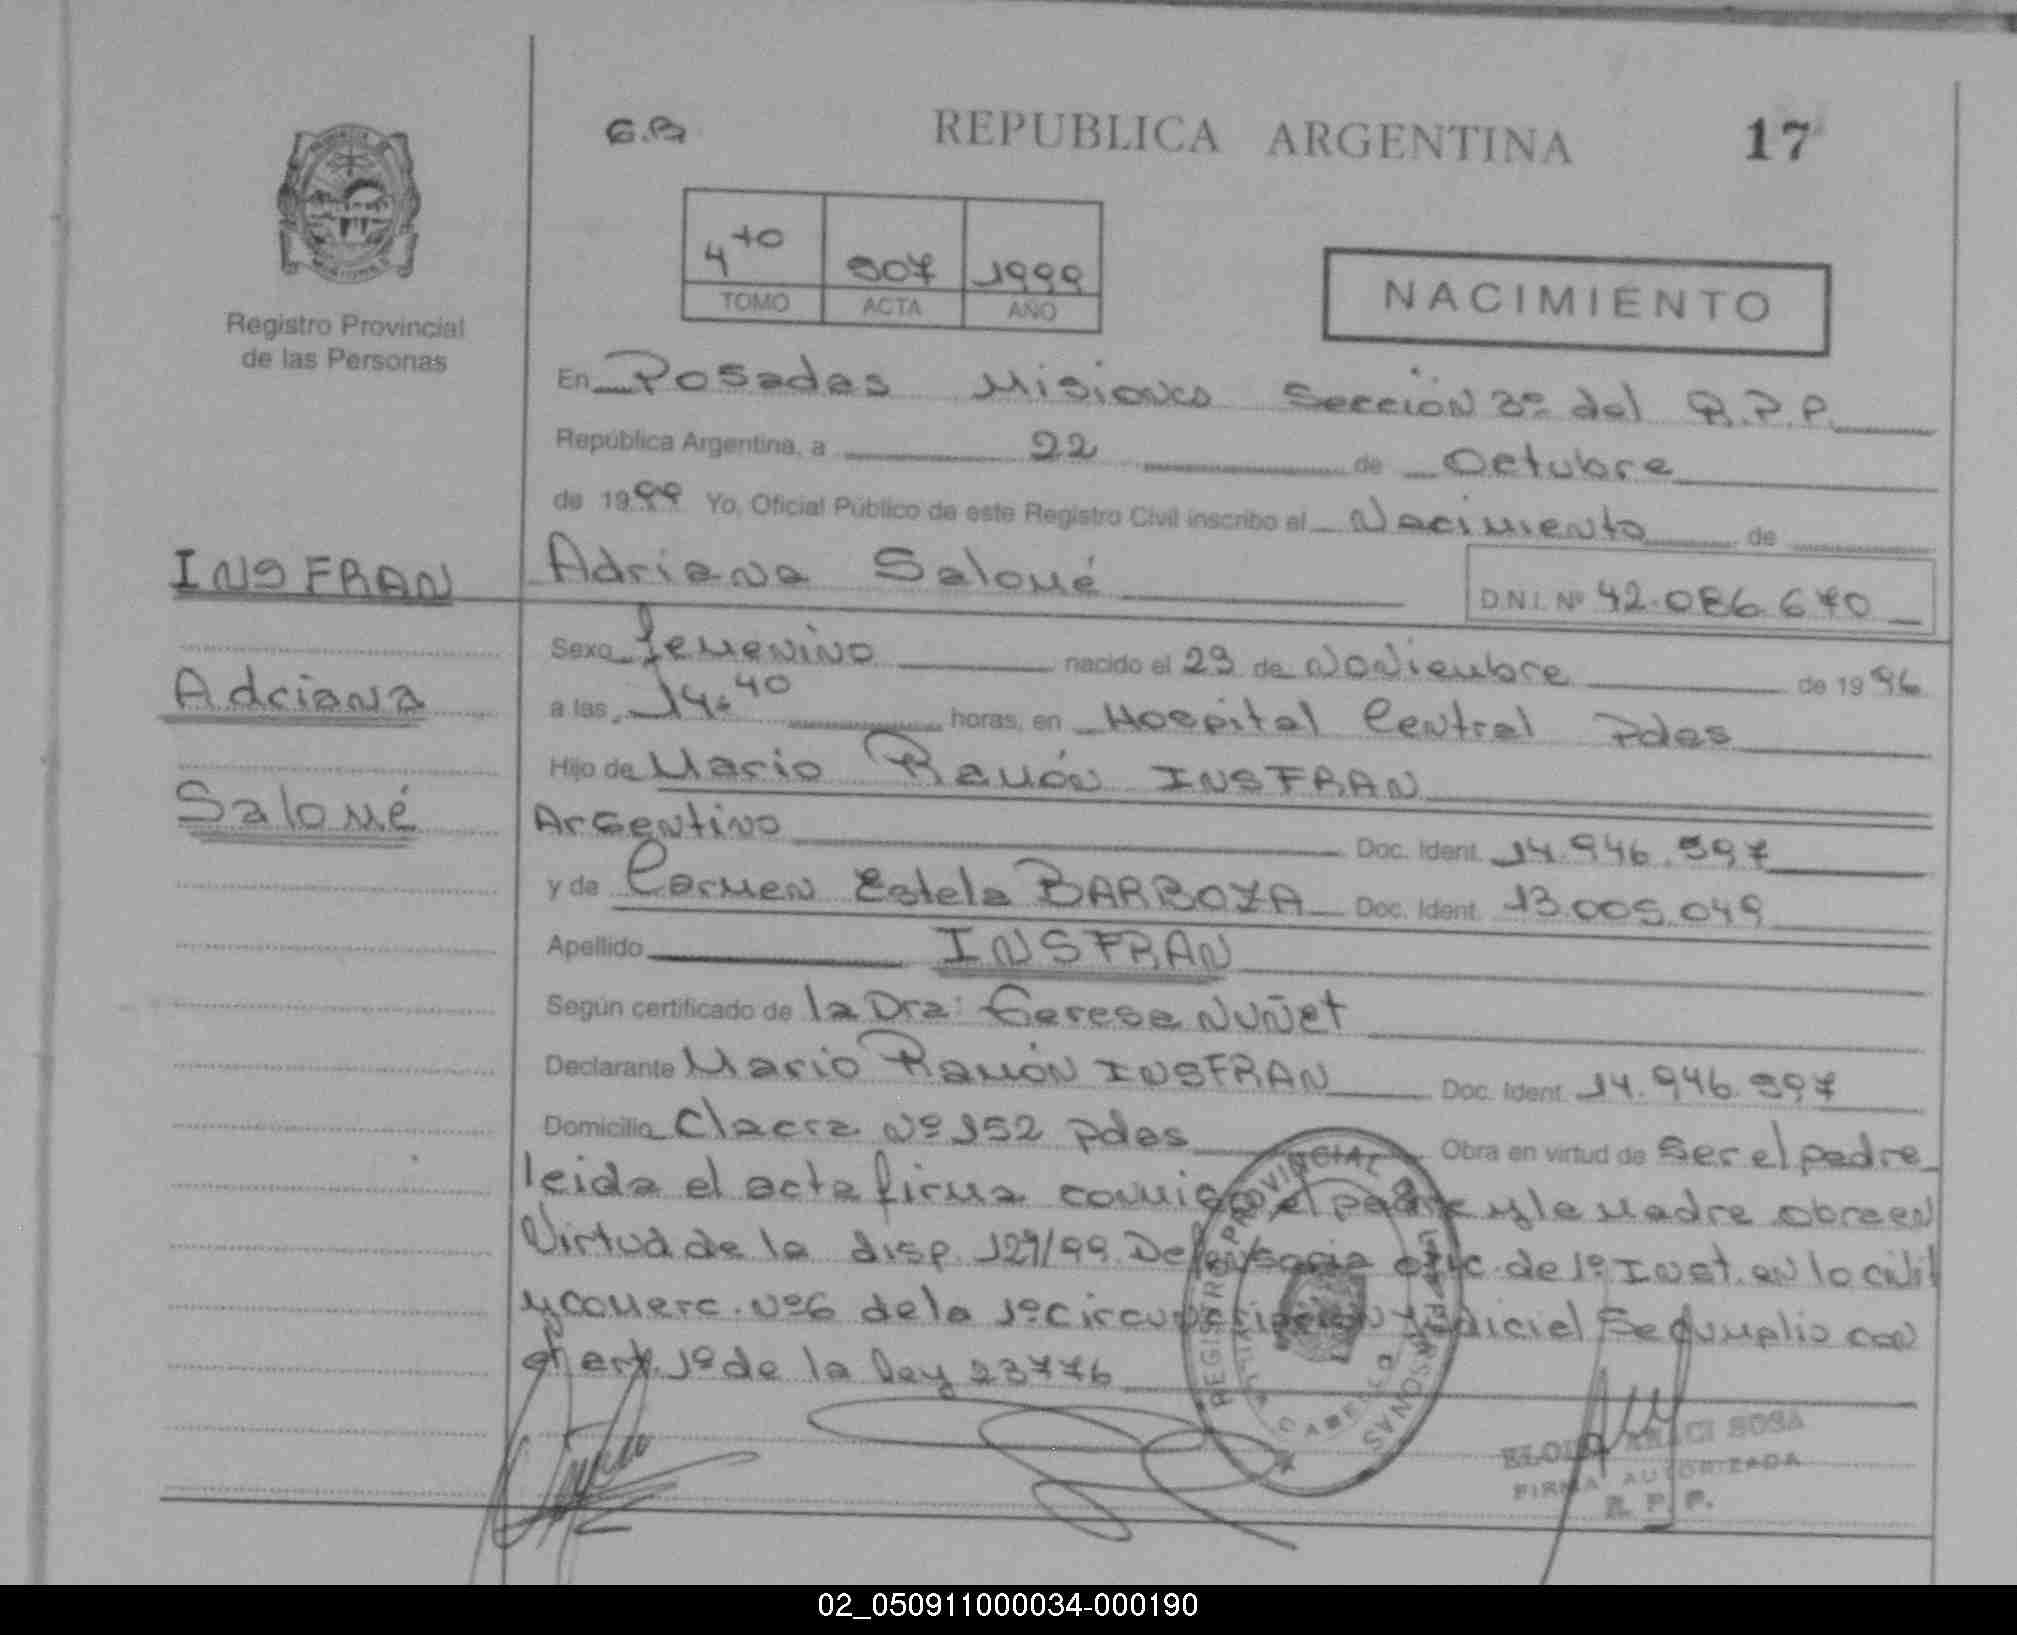 G.B.
REPUBLICA ARGENTINA
17
4to 907 1999
TOMO ACTA AÑO
NACIMIENTO
Registro Provincial
de las Personas
En Posadas Misiones Sección 3º del R.P.P.
República Argentina, a 22 de Octubre
de 1999 Yo, Oficial Público de este Registro Civil inscribo el Nacimiento de
INSFRAN
Adriana Salomé D.N.I. Nº 42.086.670
Sexo femenino nacido el 29 de Noviembre de 1996
Adriana
a las 14:40 horas, en Hospital Central Pdas
Hijo de Mario Ramón INSFRAN
Salomé
Argentino Doc. Ident. 14.946.597
y de Carmen Estela BARBOZA Doc. Ident. 13.005.049
Apellido INSFRAN
Según certificado de la Dra: Teresa Nuñet
Declarante Mario Ramón INSFRAN Doc. Ident. 14.946.597
Domicilio Clacra Nº 152 Pdas Obra en virtud de ser el padre
leida el acta firma conmigo el padre y la madre obra en
Virtud de la disp. 129/99. Defensoria ofic. de 1º Inst. en lo civil
y comerc. Nº6 de la 1º Circunscripción Judicial Se cumplio con
el art. 1º de la ley 23776
REGISTRO PROVINCIAL PERSONAS
CABECERA
ARACI SOSA
FIRMA AUTORIZADA
R. P. P.
02_050911000034-000190